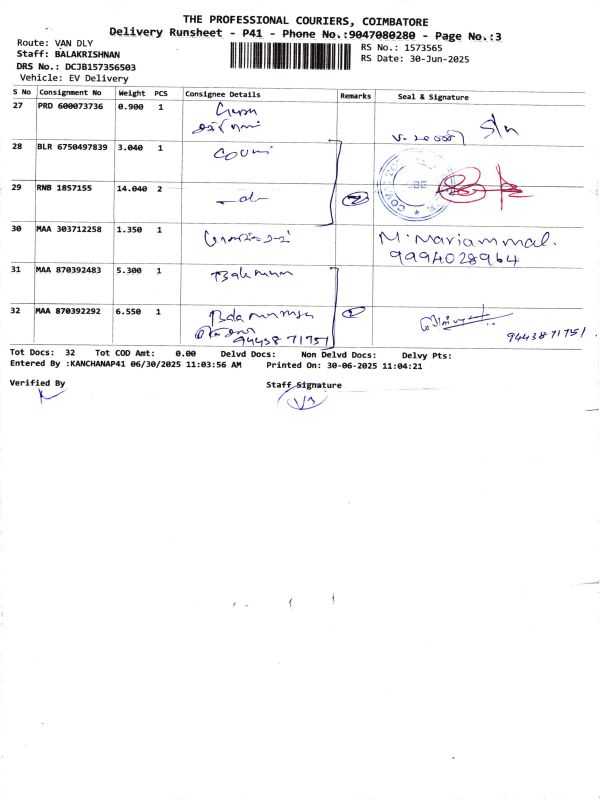 THE PROFESSIONAL COURIERS, COIMBATORE
Delivery Runsheet - P41 - Phone No.:9047080280 - Page No.:3
Route: VAN DLY
Staff: BALAKRISHNAN
DRS No.: DCJB157356503
Vehicle: EV Delivery
RS No.: 1573565
RS Date: 30-Jun-2025
S No Consignment No Weight PCS Consignee Details Remarks Seal & Signature
27 PRD 600073736 0.900 1
28 BLR 6750497839 3.040 1
29 RNB 1857155 14.040 2
30 MAA 303712258 1.350 1 M. Mariammal.
9994028964
31 MAA 870392483 5.300 1
32 MAA 870392292 6.550 1
94438 71751 94438 71751
Tot Docs: 32 Tot COD Amt: 0.00 Delvd Docs: Non Delvd Docs: Delvy Pts:
Entered By :KANCHANAP41 06/30/2025 11:03:56 AM Printed On: 30-06-2025 11:04:21
Verified By Staff Signature